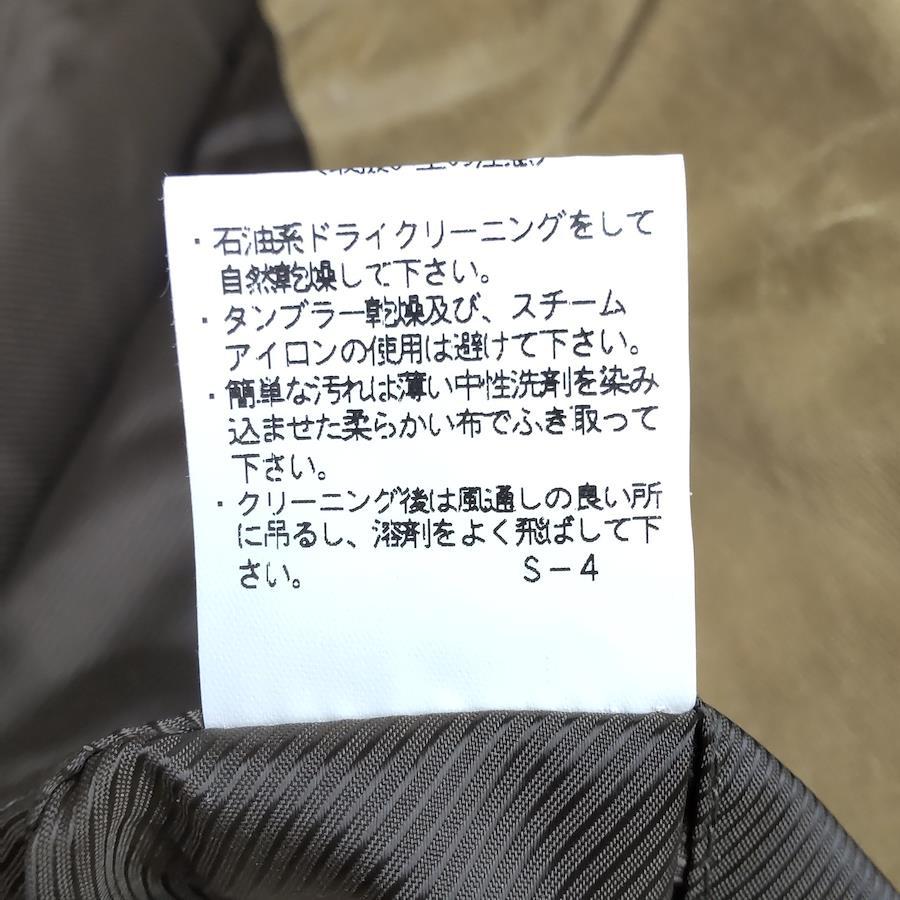 ・石油系ドライクリーニングをして
自然乾燥して下さい。
・タンブラー乾燥及び、スチーム
アイロンの使用は避けて下さい。
・簡単な汚れは薄い中性洗剤を染み
込ませた柔らかい布でふき取って
下さい。
・クリーニング後は風通しの良い所
に吊るし、溶剤をよく飛ばして下
さい。 S-4